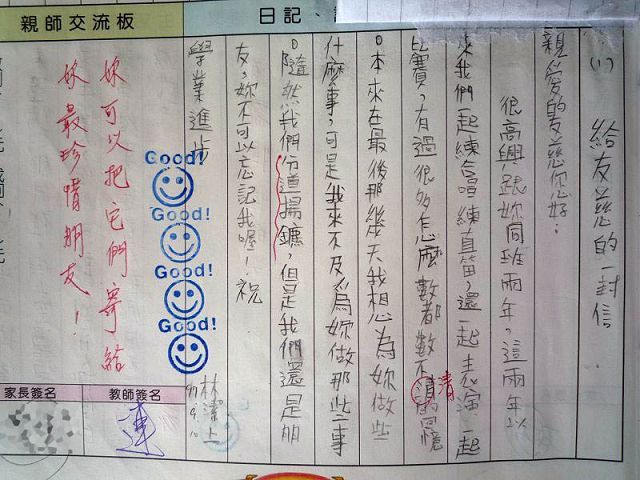 日記、
親師交流板
(1) 給友慈的一封信
親愛的友慈你好:
很高興跟妳同班兩年,這兩年以
來我們一起練合唱練直笛,還一起表演一起
比賽,有過很多怎麼數都數不清的回憶
清
。本來在最後那幾天我想為妳做些
什麼事,可是我來不及為妳做那些事
。隨然我們分道揚鑣,但是我們還是朋
友,妳不可以忘記我喔!祝
學業進步
林潔上
Good!
Good!
Good!
Good!
妳可以把它們寄給
妳最珍惜朋友!
教師簽名
家長簽名